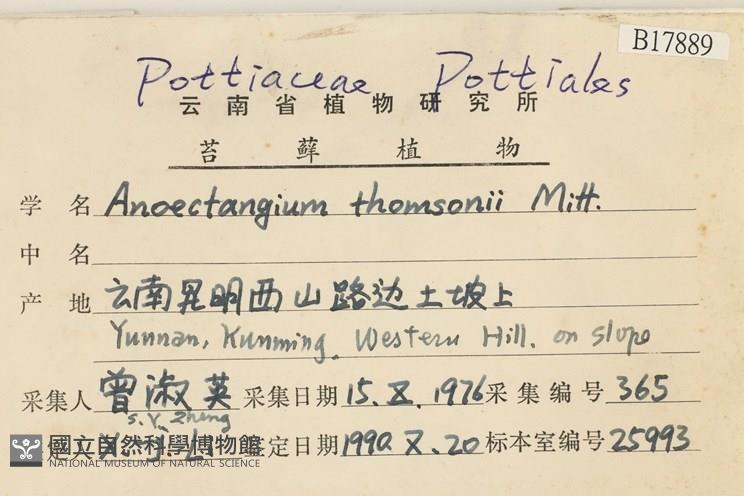 B17889
Pottiaceae Pottiales
云南省植物研究所
苔藓植物
学名 Anoectangium thomsonii Mitt.
中名
产地 云南昆明西山路边土坡上
Yunnan, Kunming. Western Hill. on slope
采集人 曾淑英 采集日期 15. X. 1976 采集编号 365
S. Y. Zheng
鉴定日期 1990. X. 20 标本室编号 25993
國立自然科學博物館
NATIONAL MUSEUM OF NATURAL SCIENCE